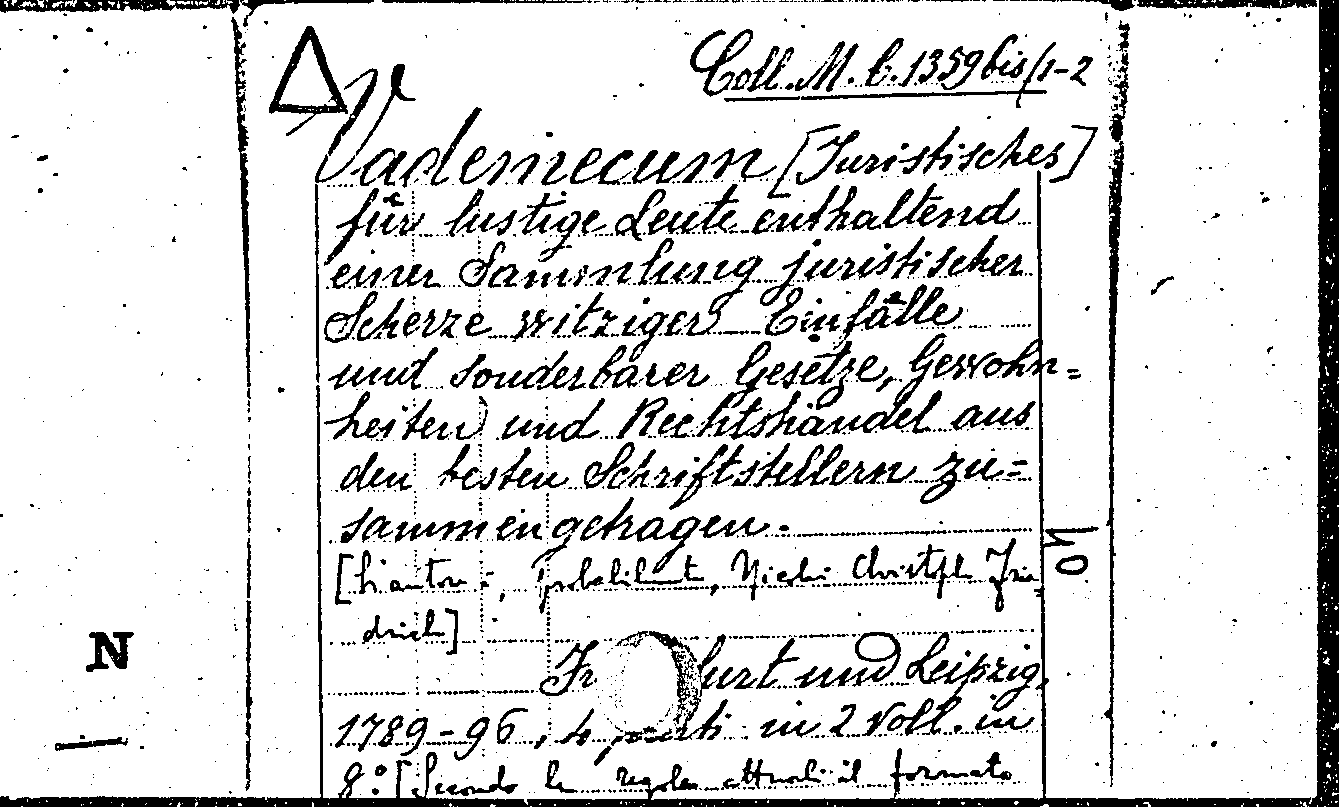 V
Coll. M. C. 1359 bis/1-2
Vademecum [Juristisches]
für lustige Leute enthaltend
einer Sammlung juristischer
Scherze witziger Einfälle
und sonderbarer Gesetze, Gewohn=
heiten und Rechtshändel aus
den besten Schriftstellern zu=
sammengetragen.
[L'autore è, probabilmente, Nicolai Christoph Frie=
drich]
Fr kfurt und Leipzig,
1789-96, 4 parti in 2 Voll. in
8.° [Secondo le regole attuali il formato
N